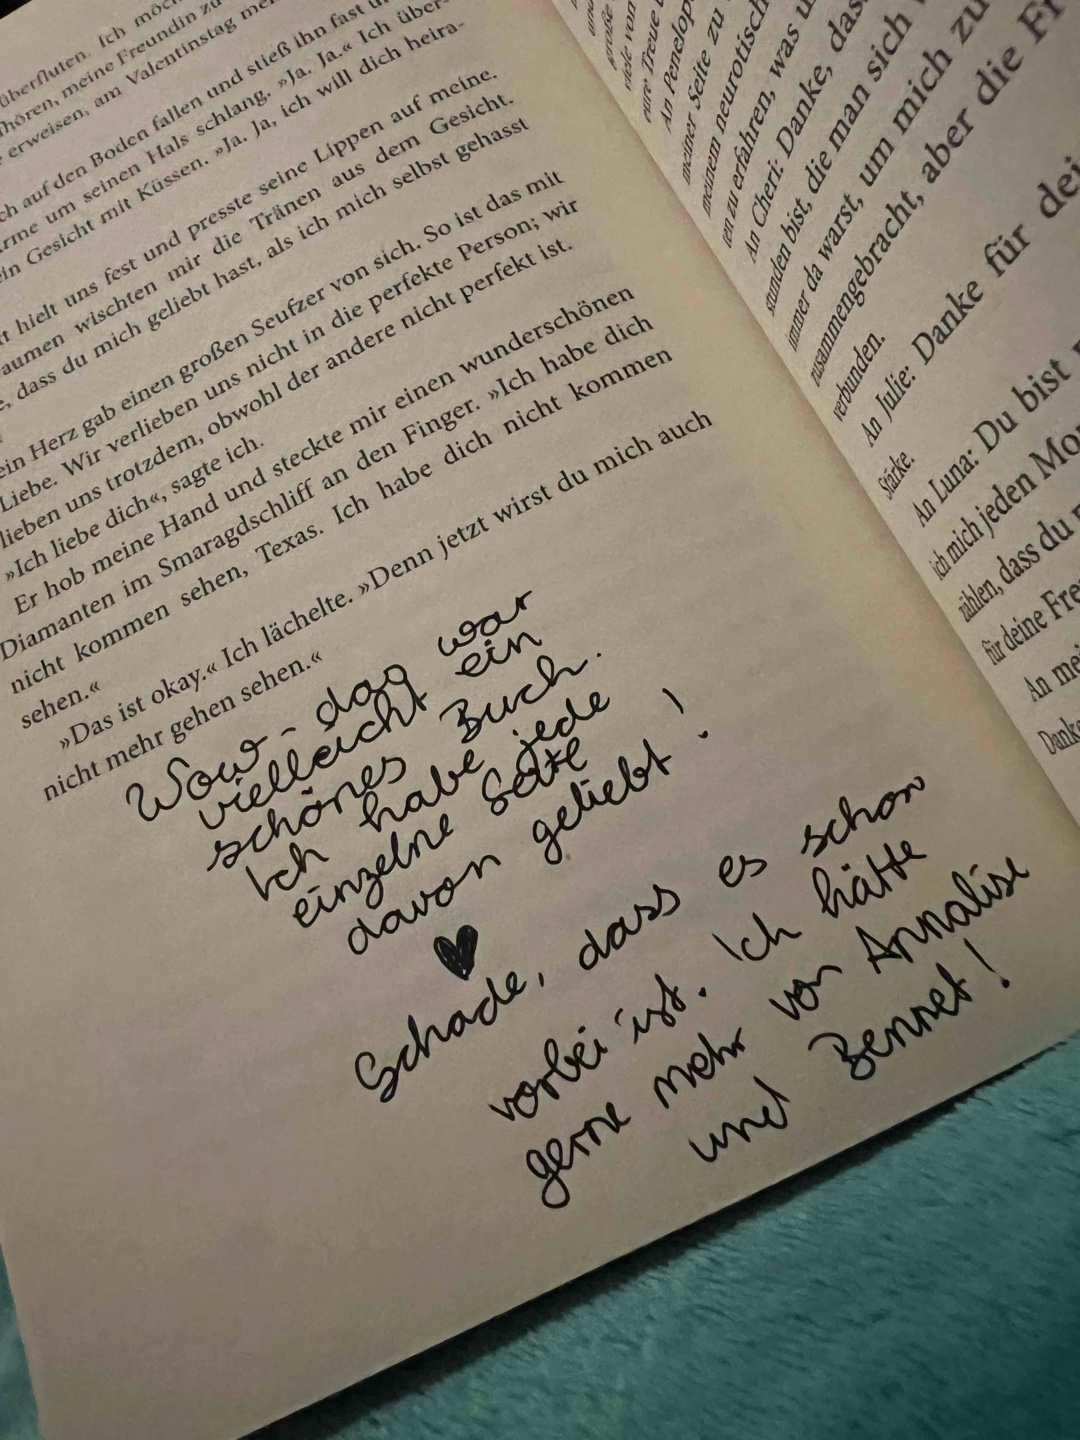 überfluten. Ich
hören, meine Freundin zu
erweisen, am Valentinstag
auf den Boden fallen und stieß ihn fast
um seinen Hals schlang. »Ja. Ja.« Ich über-
Gesicht mit Küssen. »Ja. Ja, ich will dich heira-
hielt uns fest und presste seine Lippen auf meine.
wischten mir die Tränen aus dem Gesicht.
dass du mich geliebt hast, als ich mich selbst gehasst
Herz gab einen großen Seufzer von sich. So ist das mit
Liebe. Wir verlieben uns nicht in die perfekte Person; wir
lieben uns trotzdem, obwohl der andere nicht perfekt ist.
»Ich liebe dich«, sagte ich.
Er hob meine Hand und steckte mir einen wunderschönen
Diamanten im Smaragdschliff an den Finger. »Ich habe dich
nicht kommen sehen, Texas. Ich habe dich nicht kommen
sehen.«
»Das ist okay.« Ich lächelte. »Denn jetzt wirst du mich auch
nicht mehr gehen sehen.«
Wow - das war
vielleicht ein
schönes Buch.
Ich habe jede
einzelne Seite
davon geliebt!
♥
Schade, dass es schon
vorbei ist. Ich hätte
gerne mehr von Annalise
und Bennet!
viele von
eure Treue
An Penelop
meiner Seite zu
meinem neurotisch
ten zu erfahren, was
An Cheri: Danke, das
stunden bist, die man sich
immer da warst, um mich zu
zusammengebracht, aber die Fr
verbunden.
An Julie: Danke für dei
Stärke.
An Luna: Du bist
ich mich jeden Mo
zählen, dass du
für deine Fre
An mei
Danke